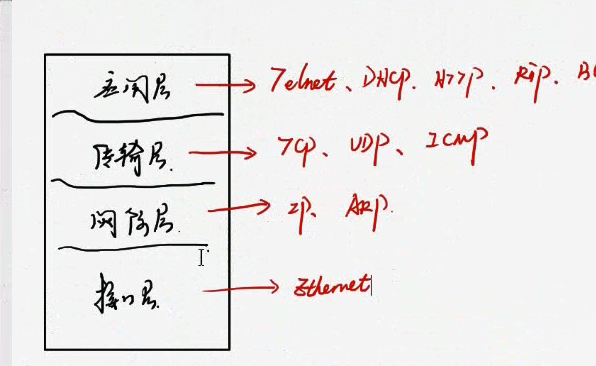 应用层 → Telnet、DHCP、HTTP、RIP、
传输层 → TCP、UDP、ICMP
网际层 → IP、ARP.
接口层 → Ethernet